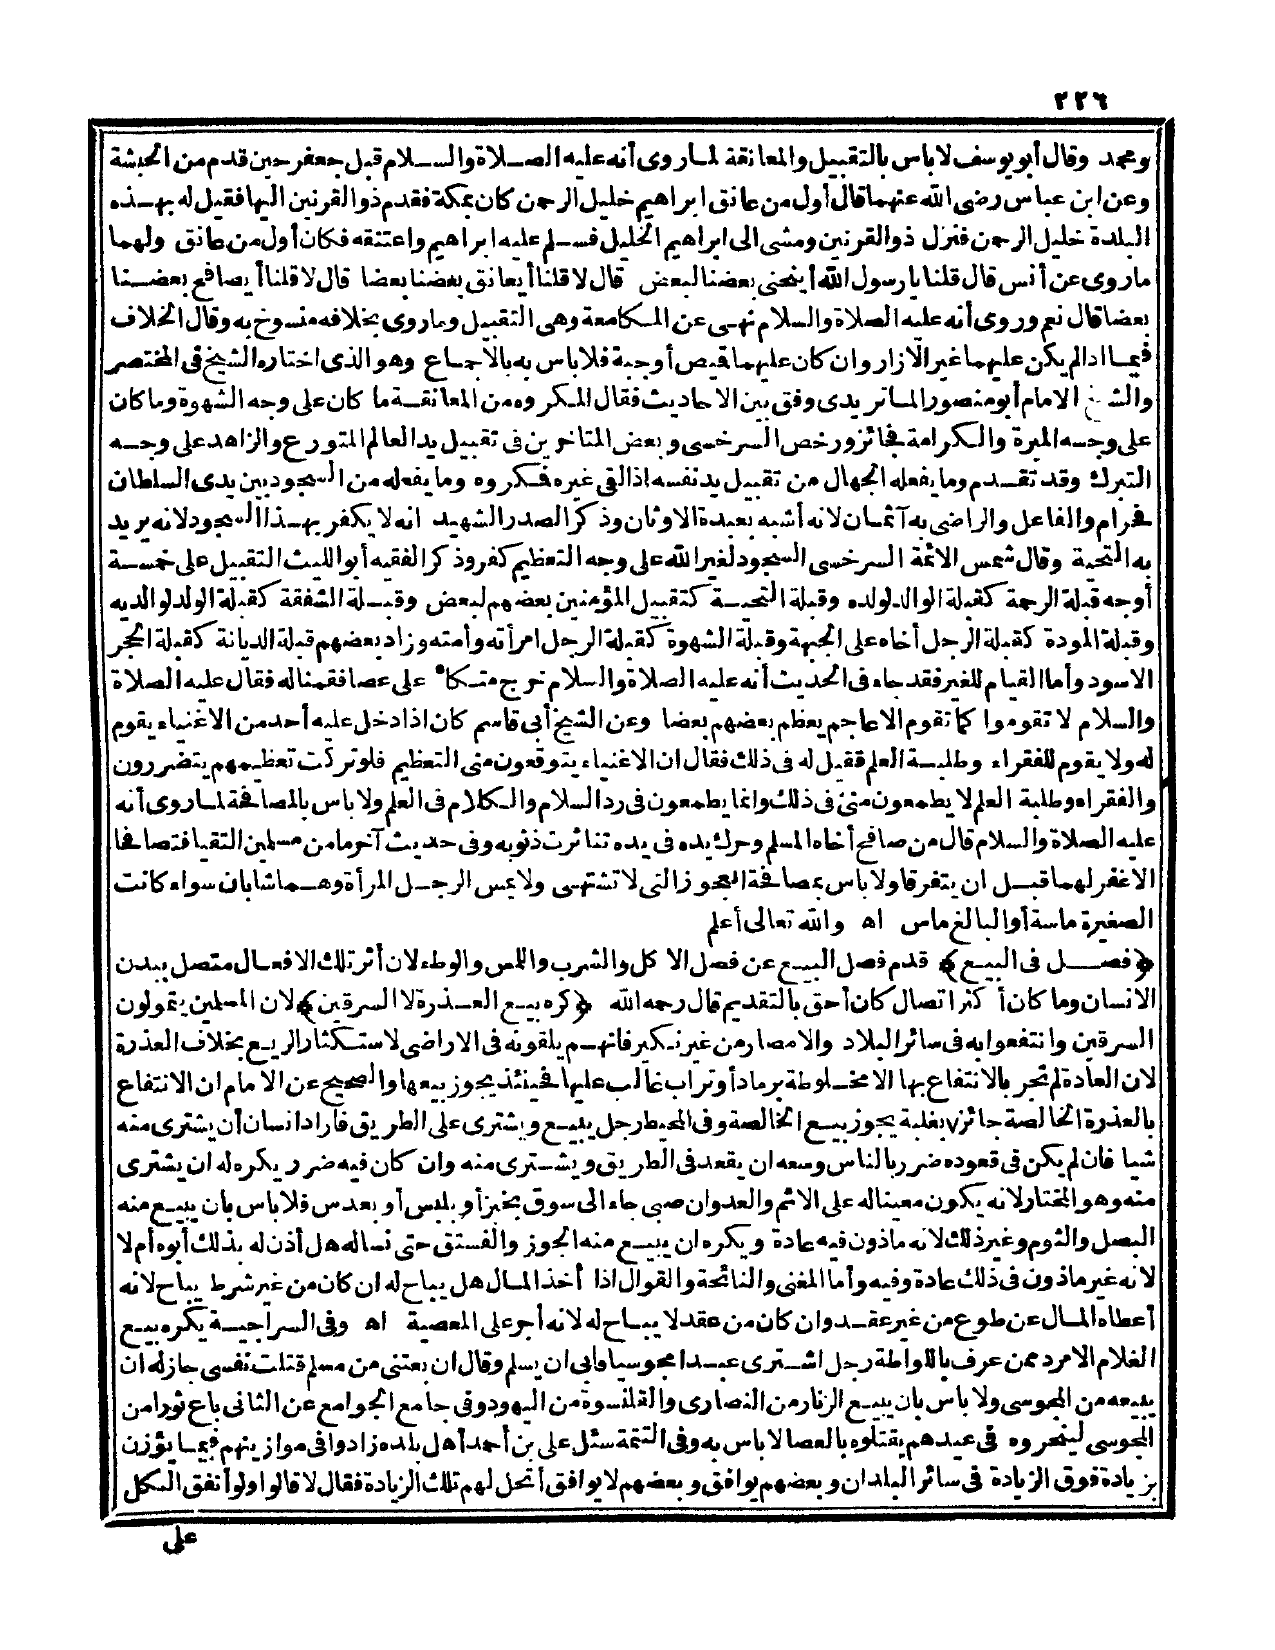 ٢٢٦
ومحمد وقال أبو يوسف لا باس بالتقبيل والمعانقة لما روى أنه عليه الصلاة والسلام قبل جعفر حين قدم من الحبشة
وعن ابن عباس رضى الله عنهما قال أول من عانق ابراهيم خليل الرحمن كان بمكة فقدم ذو القرنين اليها فقيل له بهذه
البلدة خليل الرحمن فنزل ذو القرنين ومشى الى ابراهيم الخليل فسلم عليه ابراهيم واعتنقه فكان أول من عانق ولهما
ما روى عن أنس قال قلنا يا رسول الله أينحنى بعضنا لبعض قال لا قلنا أيعانق بعضنا بعضا قال لا قلنا أيصافح بعضنا
بعضا قال نعم وروى أنه عليه الصلاة والسلام نهى عن المكامعة وهى التقبيل وما روى بخلافه منسوخ به وقال الخلاف
فيما اذا لم يكن عليهما غير الازار وان كان عليهما قميص أو جبة فلا باس به بالاجماع وهو الذى اختاره الشيخ فى المختصر
والشيخ الامام أبو منصور الماتريدى وفق بين الاحاديث فقال المكروه من المعانقة ما كان على وجه الشهوة وما كان
على وجه المبرة والكرامة فجائز ورخص السرخسى وبعض المتاخرين فى تقبيل يد العالم المتورع والزاهد على وجه
التبرك وقد تقدم وما يفعله الجهال من تقبيل يد نفسه اذا لقى غيره فمكروه وما يفعله من السجود بين يدى السلطان
فحرام والفاعل والراضى به آثمان لانه أشبه بعبدة الاوثان وذكر الصدر الشهيد انه لا يكفر بهذا السجود لانه يريد
به التحية وقال شمس الائمة السرخسى السجود لغير الله على وجه التعظيم كفر وذكر الفقيه أبو الليث التقبيل على خمسة
أوجه قبلة الرحمة كقبلة الوالد لولده وقبلة التحية كتقبيل المؤمنين بعضهم لبعض وقبلة الشفقة كقبلة الولد لوالديه
وقبلة المودة كقبلة الرجل أخاه على الجبهة وقبلة الشهوة كقبلة الرجل امرأته وأمته وزاد بعضهم قبلة الديانة كقبلة الحجر
الاسود وأما القيام للغير فقد جاء فى الحديث أنه عليه الصلاة والسلام خرج متكأ على عصا فقمنا له فقال عليه الصلاة
والسلام لا تقوموا كما تقوم الاعاجم يعظم بعضهم بعضا وعن الشيخ أبى قاسم كان اذا دخل عليه أحد من الاغنياء يقوم
له ولا يقوم للفقراء وطلبة العلم فقيل له فى ذلك فقال ان الاغنياء يتوقعون منى التعظيم فلو تركت تعظيمهم يتضررون
والفقراء وطلبة العلم لا يطمعون منى فى ذلك وانما يطمعون فى رد السلام والكلام فى العلم ولا باس بالمصافحة لما روى أنه
عليه الصلاة والسلام قال من صافح أخاه المسلم وحرك يده فى يده تناثرت ذنوبه وفى حديث آخر ما من مسلمين التقيا فتصافحا
الا غفر لهما قبل ان يتفرقا ولا باس بمصافحة العجوز التى لا تشتهى ولا يمس الرجل المرأة وهما شابان سواء كانت
الصغيرة ماسة أو البالغ ماس اه والله تعالى أعلم
﴿فصل فى البيع﴾ قدم فصل البيع عن فصل الاكل والشرب واللمس والوطء لان أثر تلك الافعال متصل ببدن
الانسان وما كان أكثر اتصال كان أحق بالتقديم قال رحمه الله ﴿كره بيع العذرة لا السرقين﴾ لان المسلمين يتمولون
السرقين وانتفعوا به فى سائر البلاد والامصار من غير نكير فانهم يلقونه فى الاراضى لاستكثار الريع بخلاف العذرة
لان العادة لم تجر بالانتفاع بها الا مخلوطة برماد أو تراب غالب عليها فحينئذ يجوز بيعها والصحيح عن الامام ان الانتفاع
بالعذرة الخالصة جائز ٧ بغلبة يجوز بيع الخالصة وفى المحيط رجل يبيع ويشترى على الطريق فاراد انسان أن يشترى منه
شيا فان لم يكن فى قعوده ضرر بالناس وسعه ان يقعد فى الطريق ويشترى منه وان كان فيه ضرر يكره له ان يشترى
منه وهو المختار لانه يكون معينا له على الاثم والعدوان صبى جاء الى سوق بخبز أو بلبس أو بعدس فلا باس بان يبيع منه
البصل والثوم وغير ذلك لانه ماذون فيه عادة ويكره ان يبيع منه الجوز والفستق حتى نساله هل أذن له بذلك أبوه أم لا
لانه غير ماذون فى ذلك عادة وفيه وأما المغنى والنائحة والقوال اذا أخذ المال هل يباح له ان كان من غير شرط يباح لانه
أعطاه المال عن طوع من غير عقد وان كان من عقد لا يباح له لانه أجر على المعصية اه وفى السراجية يكره بيع
الغلام الامرد ممن عرف باللواطة رجل اشترى عبدا مجوسيا وأبى ان يسلم وقال ان بعتنى من مسلم قتلت نفسى جاز له ان
يبيعه من المجوسى ولا باس بان يبيع الزنار من النصارى والقلنسوة من اليهود وفى جامع الجوامع عن الثانى باع ثورا من
المجوسى لينحروه فى عيدهم يقتلوه بالعصا لا باس به وفى التتمة سئل على بن أحمد أهل بلده زادوا فى موازينهم فيما يؤزن
بزيادة فوق الزيادة فى سائر البلدان وبعضهم يوافق وبعضهم لا يوافق أتحل لهم تلك الزيادة فقال لا قالوا ولو أتفق الكل
على